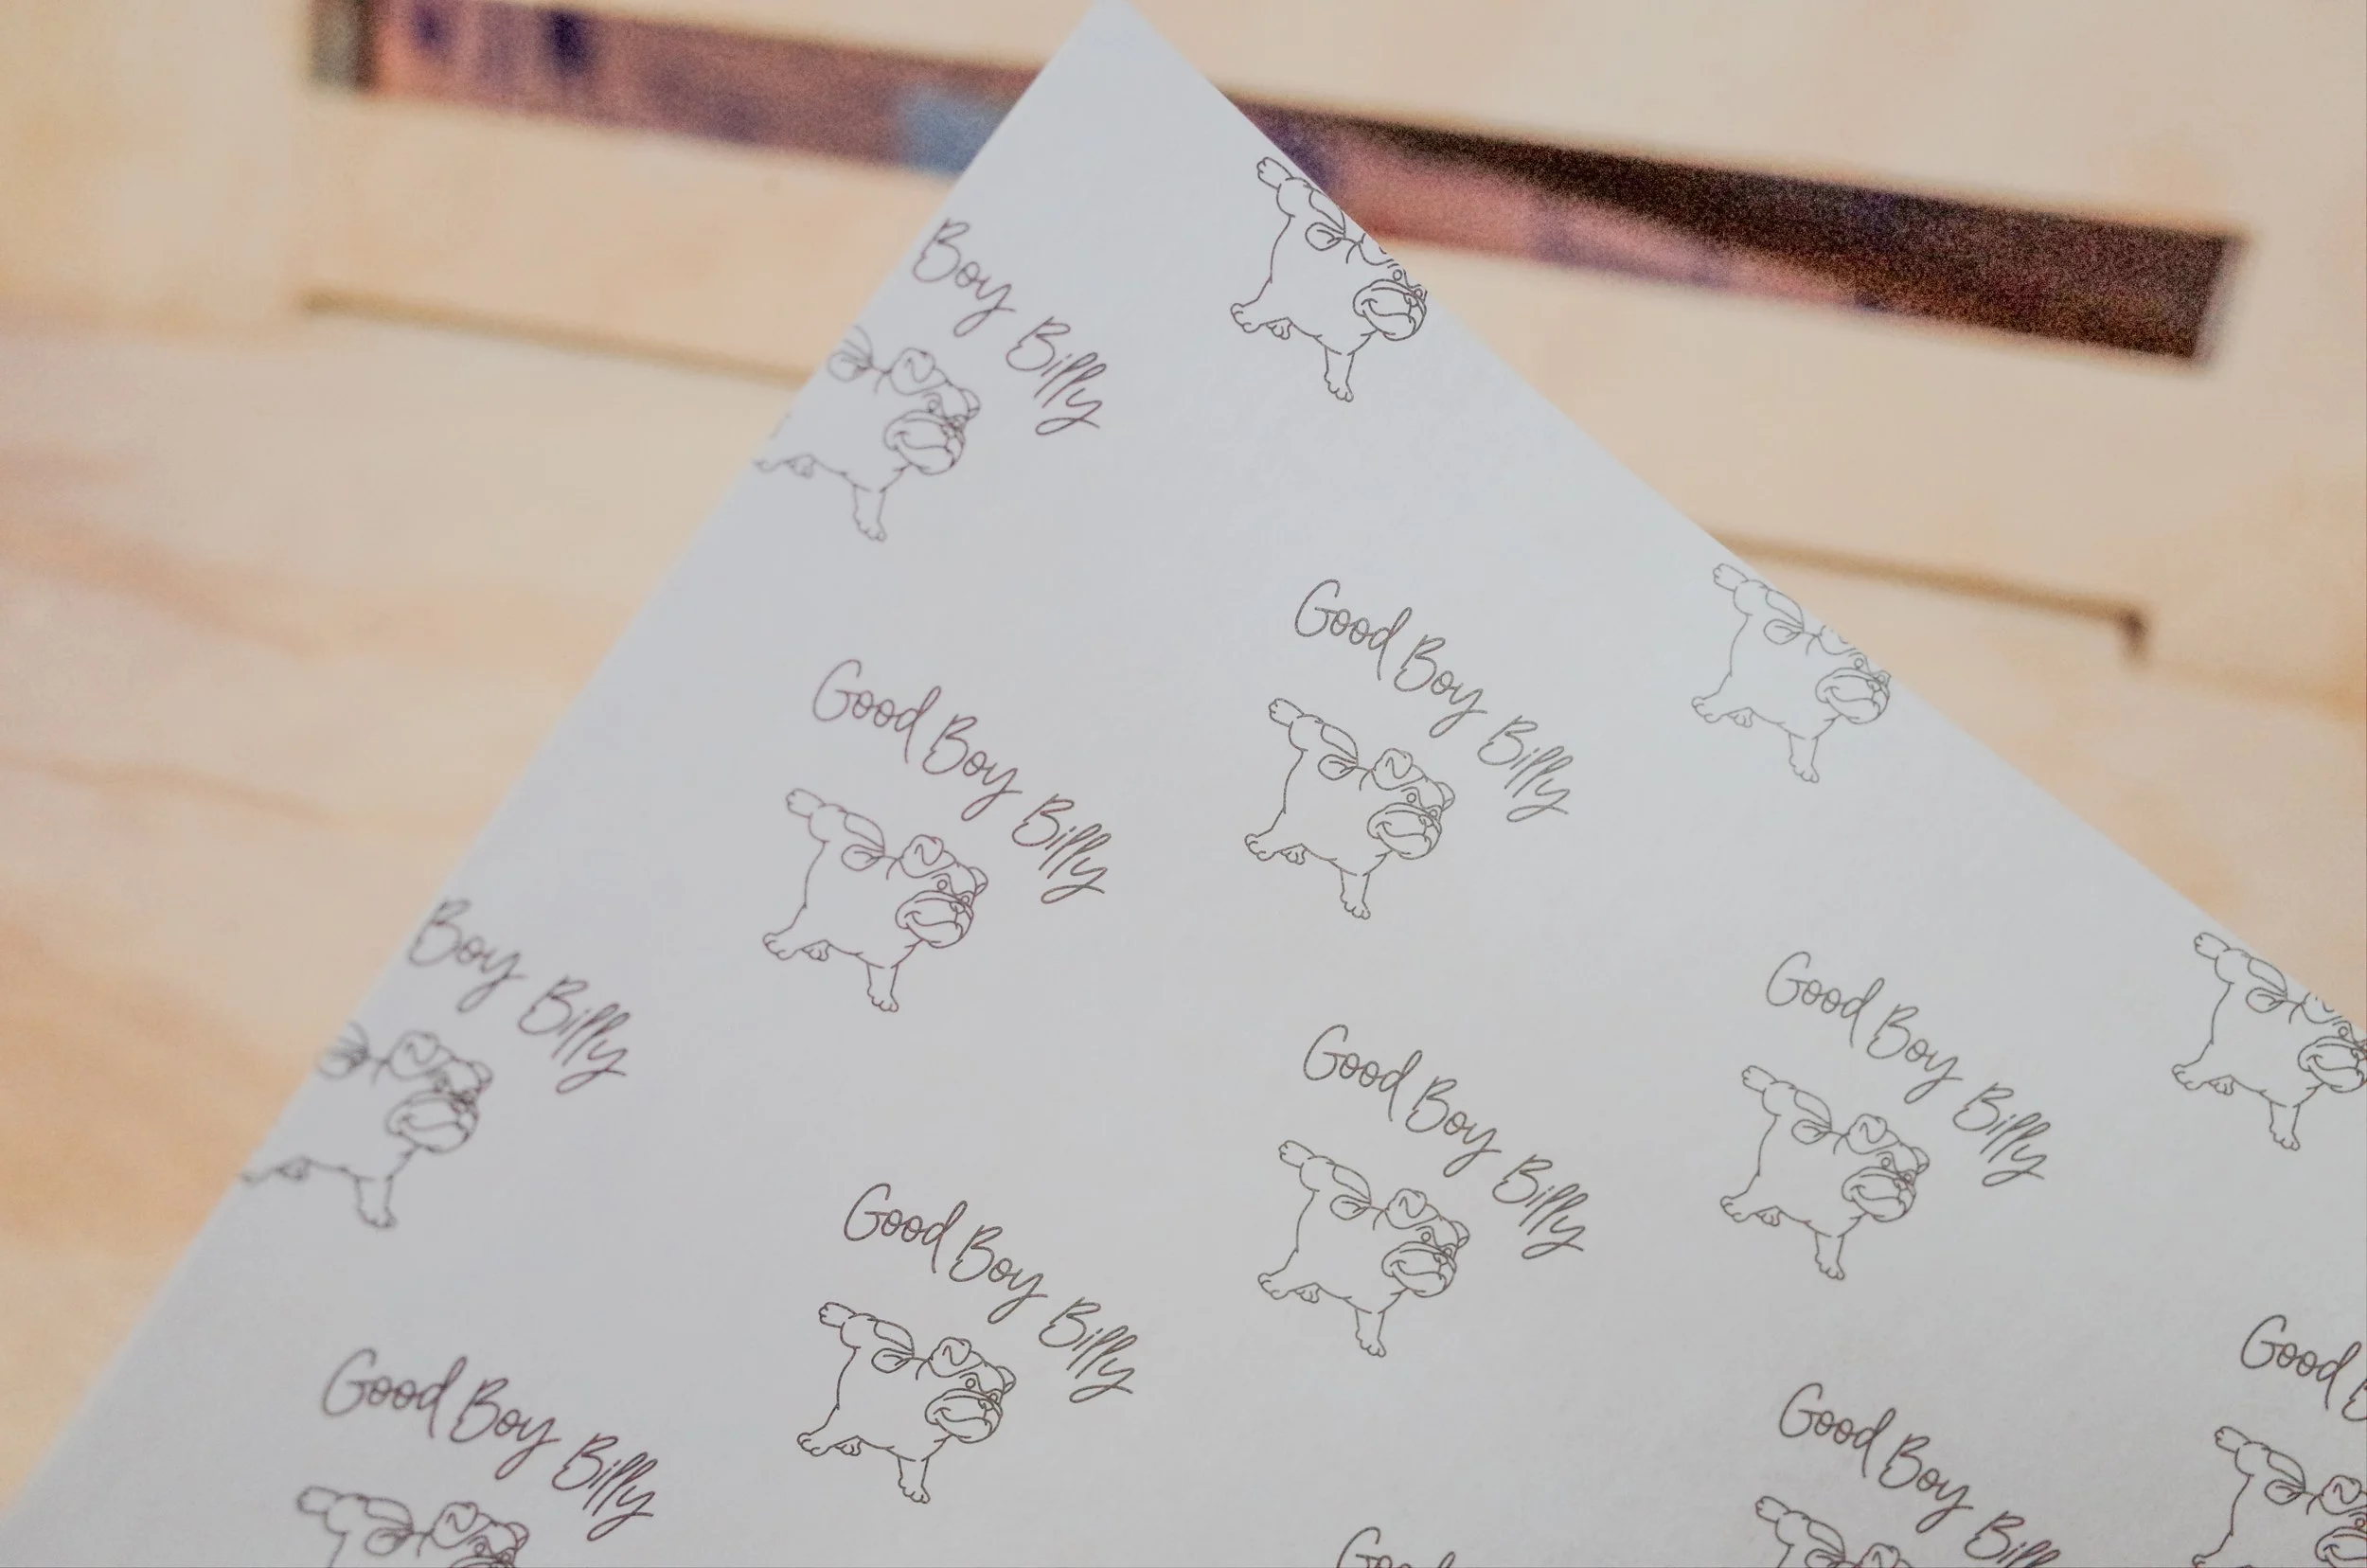 Boy Billy
Good Boy Billy
Good Boy Billy
Boy Billy
Good Boy Billy
Good Boy Billy
Good Boy Billy
Good Boy Billy
Good
Good Boy Billy
Goo